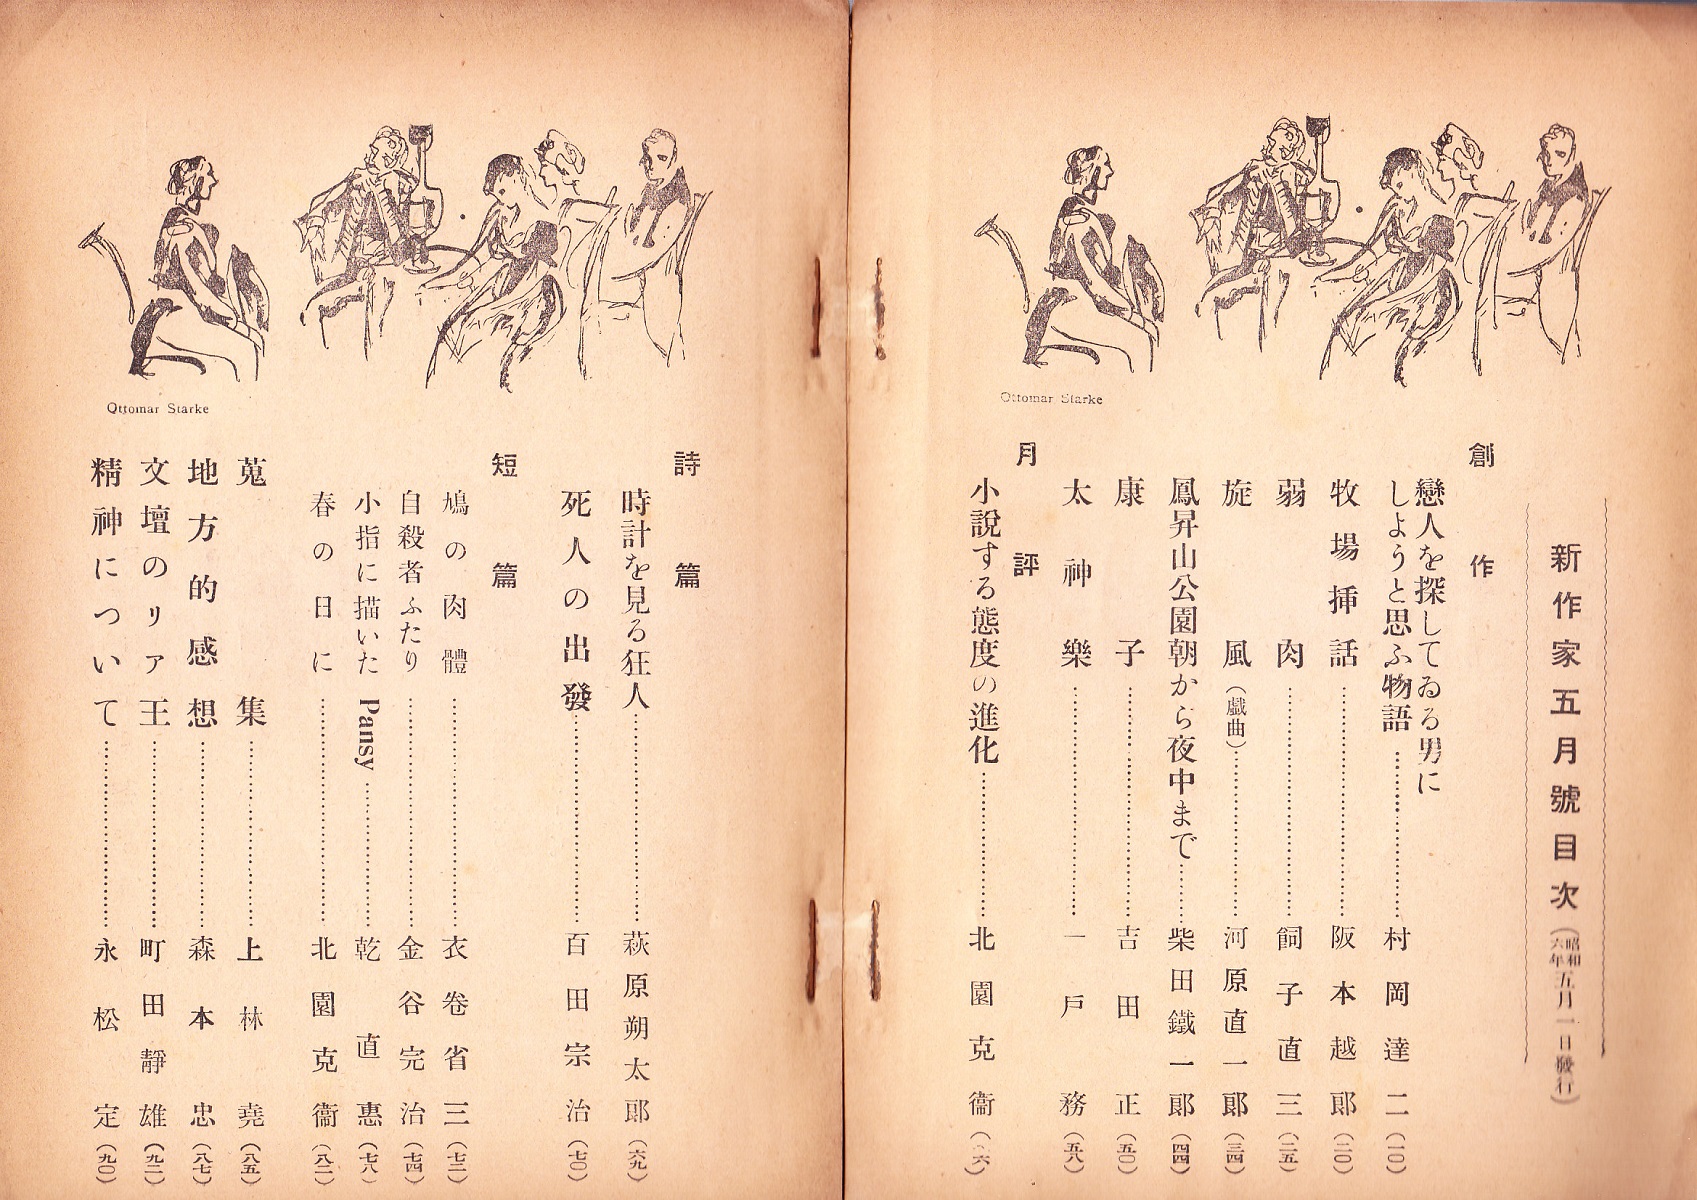 新作家五月號目次（昭和六年五月一日發行）
創作
戀人を探してゐる男に
しようと思ふ物語…………村岡達二（一〇）
牧場挿話…………阪本越郎（二〇）
弱肉…………飼子直三（二五）
旋風（戯曲）…………河原直一郎（三四）
鳳昇山公園朝から夜中まで…………柴田鐵一郎（四四）
康子…………吉田正（五〇）
太神樂…………一戸務（五八）
月評
小説する態度の進化…………北園克衞
Ottomar Starke
詩篇
時計を見る狂人…………萩原朔太郎（六九）
死人の出發…………百田宗治（七〇）
短篇
鳩の肉體…………衣卷省三（七二）
自殺者ふたり…………金谷完治（七四）
小指に描いた Pansy…………乾直惠（七八）
春の日に…………北園克衞（八二）
蒐集…………上林堯（八五）
地方的感想…………森本忠（八七）
文壇のリア王…………町田靜雄（九二）
精神について…………永松定（九〇）
Ottomar Starke